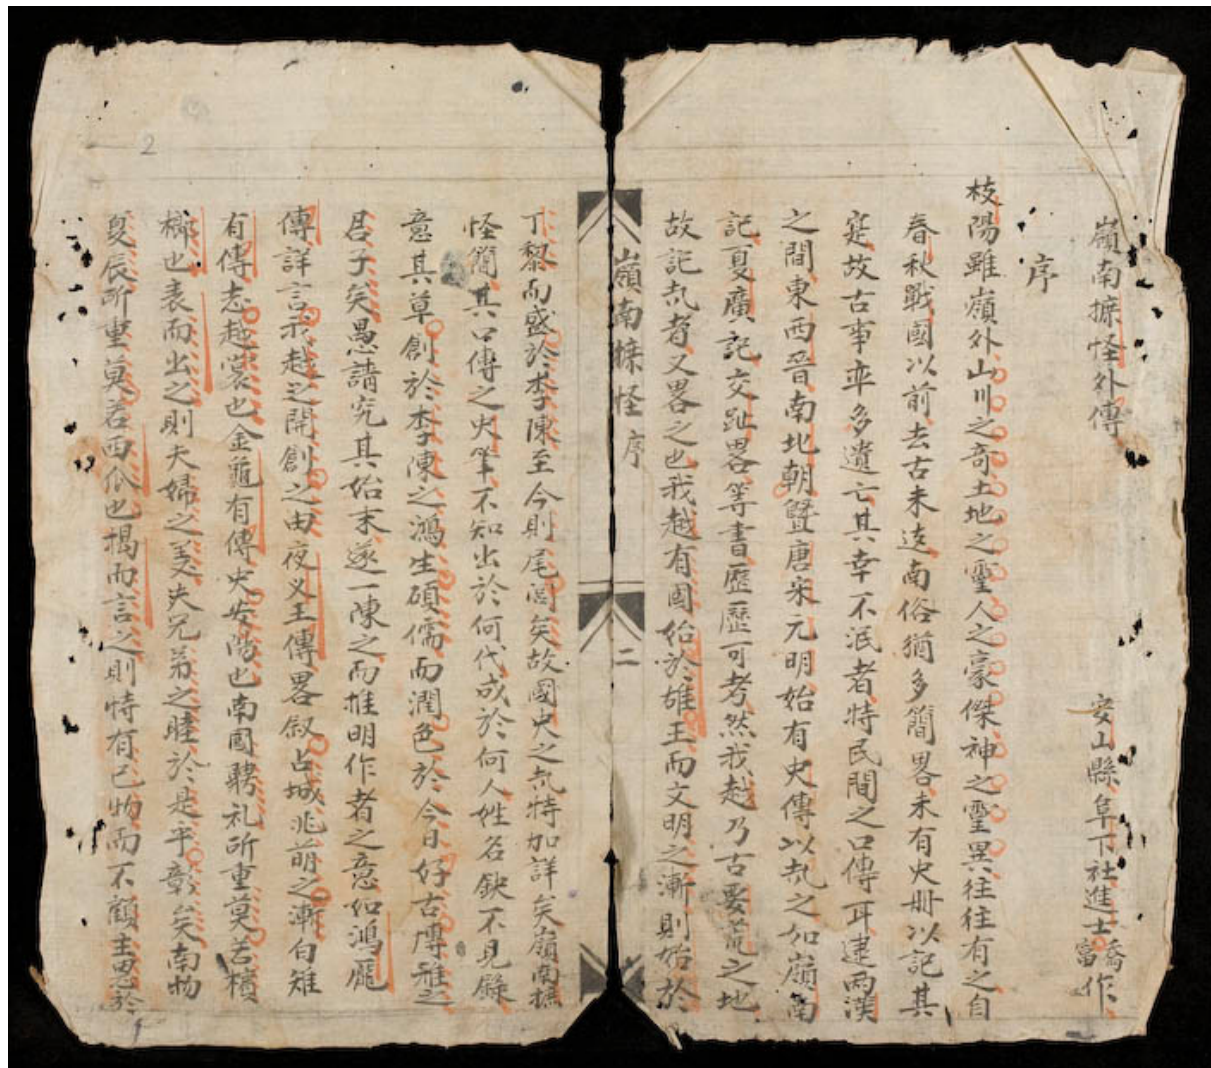 嶺南摭怪外傳
安山縣阜下社進士喬富作
序
枝陽雖嶺外山川之奇土地之靈人之豪傑神之靈異往往有之自
春秋戰國以前去古未遠南俗猶多簡畧未有史册以記其
寔故古事率多遺亡其幸不泯者特民間之口傳耳逮兩漢
之間東西晉南北朝暨唐宋元明始有史傳以記之如嶺南
記夏廣記交趾畧等書歷歷可考然我越乃古要荒之地
故記者又畧之也我越有國始於雄王而文明之漸則始於
嶺南摭怪序
二
丁黎而盛於李陳至今則尾閭矣故國史之特加詳矣嶺南摭
怪簡其口傳之史筆不知出於何代成於何人姓名缺不見
意其草創於李陳之鴻生碩儒而潤色於今日好古博雅之
君子矣愚請究其始末遂一陳之而推明作者之意如鴻厖
傳詳言我越之開創之由夜义王傳畧叙占城兆萌之漸白雉
有傳志越裳也金龜有傳史安陽也南國聘礼所重莫若檳
榔也表而出之則夫婦之美夫兄弟之睦於是乎彰矣南物
夏辰所重莫若西瓜也揭而言之則恃有己物而不顧主恩於
2